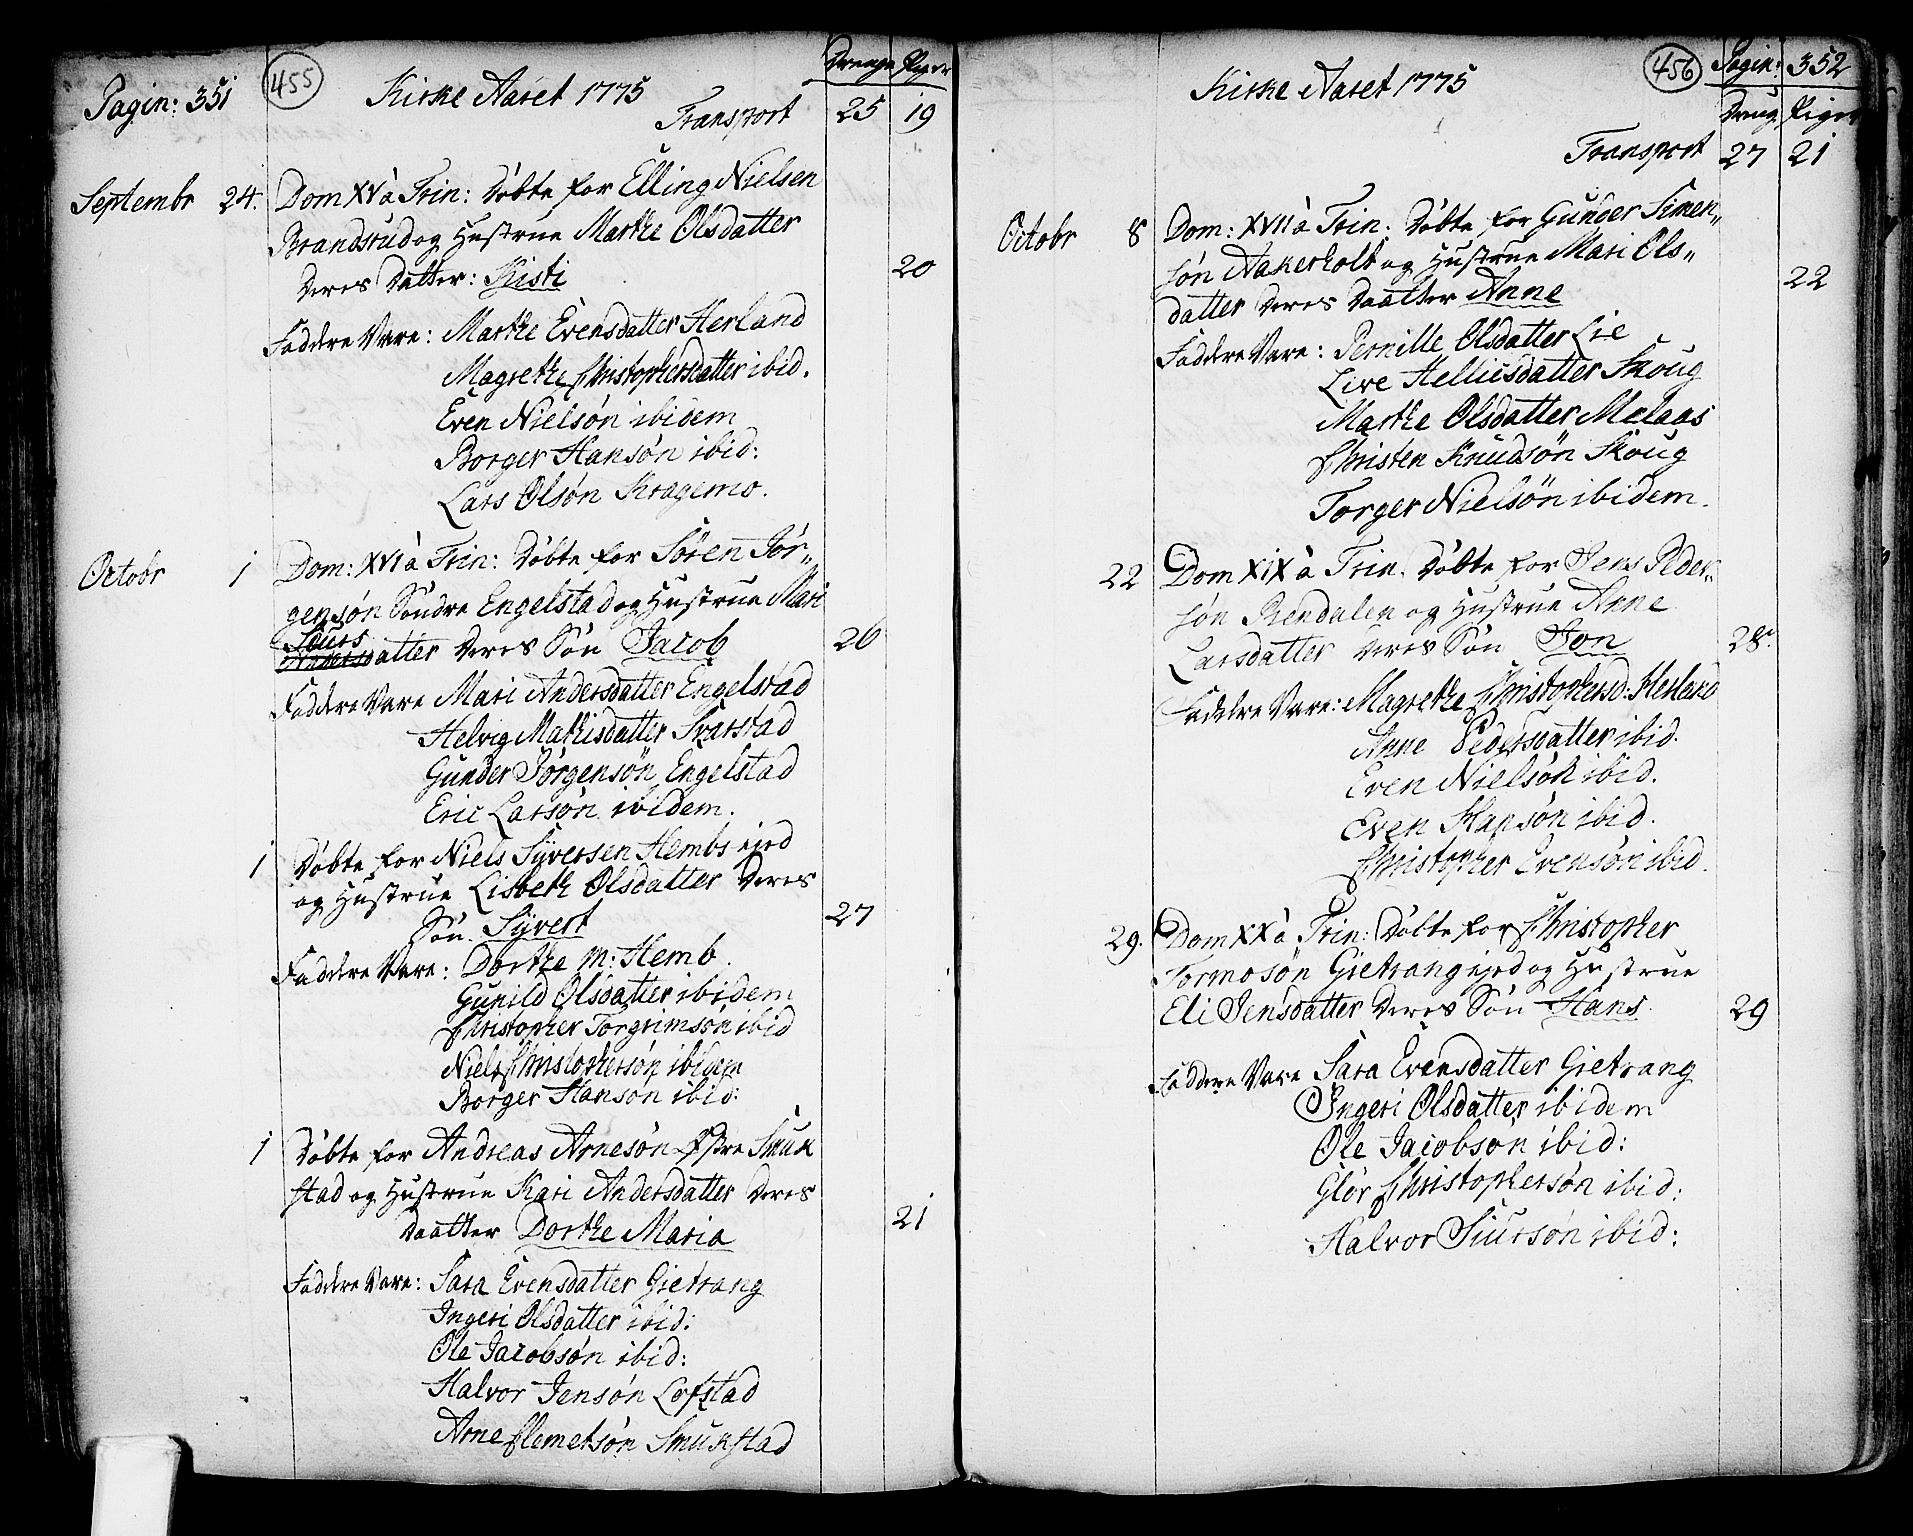 Pagin: 351
455
Kirke Aaret 1775
Drenge Piger
Transport 25 19
Septembr 24. Dom XV à Trin: Døbte for Elling Nielsen
Brandsrud og Hustrue Marthe Olsdatter
Deres Datter: Kisti 20
Faddere Vare: Marthe Evensdatter Herland
Magrethe Christophersdatter ibid.
Even Nielsøn ibidem
Borger Hansøn ibid:
Lars Olsøn Kragemo.
Octobr 1 Dom: XVI à Trin: Døbte for Søren Jør„
gensøn Søndre Engelstad og Hustrue Mari
Siurs
Andersdatter Deres Søn Jacob 26
Faddere Vare Mari Andersdatter Engelstad
Helvig Mathisdatter Svarstad
Gunder Jørgensøn Engelstad
Eric Larsøn ibidem.
1 Døbte for Niels Syversen Hembs ejed
og Hustrue Lisbeth Olsdatter Deres
Søn. Syvert 27
Faddere Vare: Dorthe M: Hemb.
Gunild Olsdatter ibidem
Christopher Torgrimsøn ibid
Niels Christophersøn ibidem
Borger Hansøn ibid:
1 Døbte for Andreas Arnesøn Øfre Smuk
stad og Hustrue Kari Andersdatter Deres
Daatter Dorthe Maria 21
Faddere Vare: Sara Evensdatter Gietrang
Ingeri Olsdatter ibid:
Ole Jacobsøn ibid:
Halvor Jensøn Lofstad
Arne Clemetsøn Smukstad
456
Pagin: 352
Kirke Aaret 1775
Dreng Piger
Transport 27 21
Octobr 8 Dom: XVII à Trin: Døbte for Gunder Simen„
søn Aakerholt og Hustrue Mari Ols„
datter Deres Daatter Anne 22
Faddere Vare: Pernille Olsdatter Lie
Live Hellicsdatter Skoug
Marthe Olsdatter Melaas
Christen Knudsøn Skoug
Torger Nielsøn ibidem.
22 Dom XIX à Trin. Døbte for Jens Peder„
søn Rendalen og Hustrue Anne
Larsdatter Deres Søn Jon 28.
Faddere Vare: Magrethe Christophersd: Herland
Anne Pedersdatter ibid.
Even Nielsøn ibid.
Even Hansøn ibid.
Christopher Evensøn ibid.
29. Dom XX à Trin: Døbte for Christopher
Tormosøn Gietrang ejed og Hustrue
Eli Jensdatter Deres Søn Hans 29
Faddere Vare Sara Evensdatter Gietrang
Ingeri Olsdatter ibidem
Ole Jacobsøn ibid:
Glør Christophersøn ibid:
Halvor Siursøn ibid: